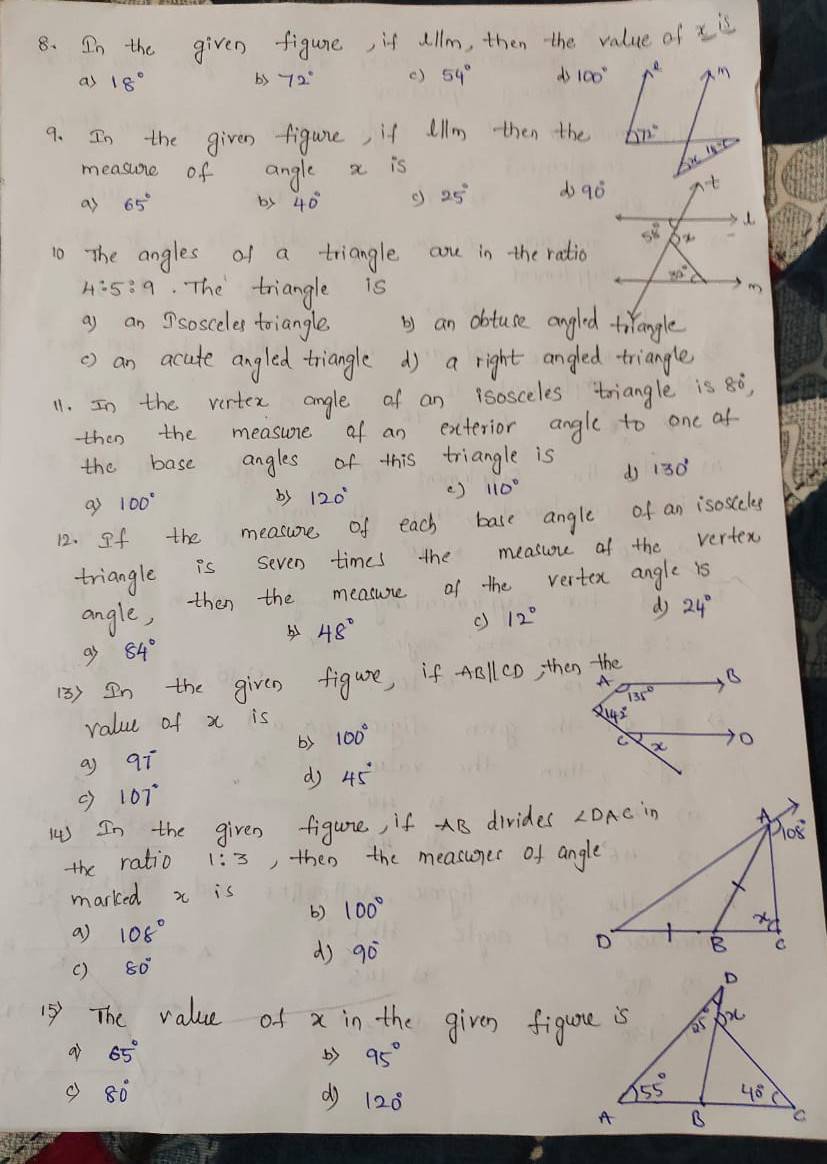 8. In the given figure, if l||m, then the value of x is
a) 18° b) 72° c) 54° d) 100°
l m
72°
x
9. In the given figure, if l||m then the
measure of angle x is
a) 65° b) 40° c) 25° d) 90
t
l
x
m
10 The angles of a triangle are in the ratio
4:5:9. The triangle is
a) an Isosceles triangle b) an obtuse angled triangle
c) an acute angled triangle d) a right angled triangle
11. In the vertex angle of an isosceles triangle is 80°,
then the measure of an exterior angle to one of
the base angles of this triangle is
a) 100° b) 120° c) 110° d) 130°
12. If the measure of each base angle of an isosceles
triangle is seven times the measure of the vertex
angle, then the measure of the vertex angle is
a) 84° b) 48° c) 12° d) 24°
13) In the given figure, if AB||CD, then the
value of x is
a) 97° b) 100°
c) 107° d) 45°
A B
135°
142°
C x D
14) In the given figure, if AB divides ∠DAC in
the ratio 1:3, then the measures of angle
marked x is
a) 108° b) 100°
c) 80° d) 90°
A
108°
x
D B C
15) The value of x in the given figure is
a) 65° b) 95°
c) 80° d) 120°
D
25° x
55° 40°
A B C